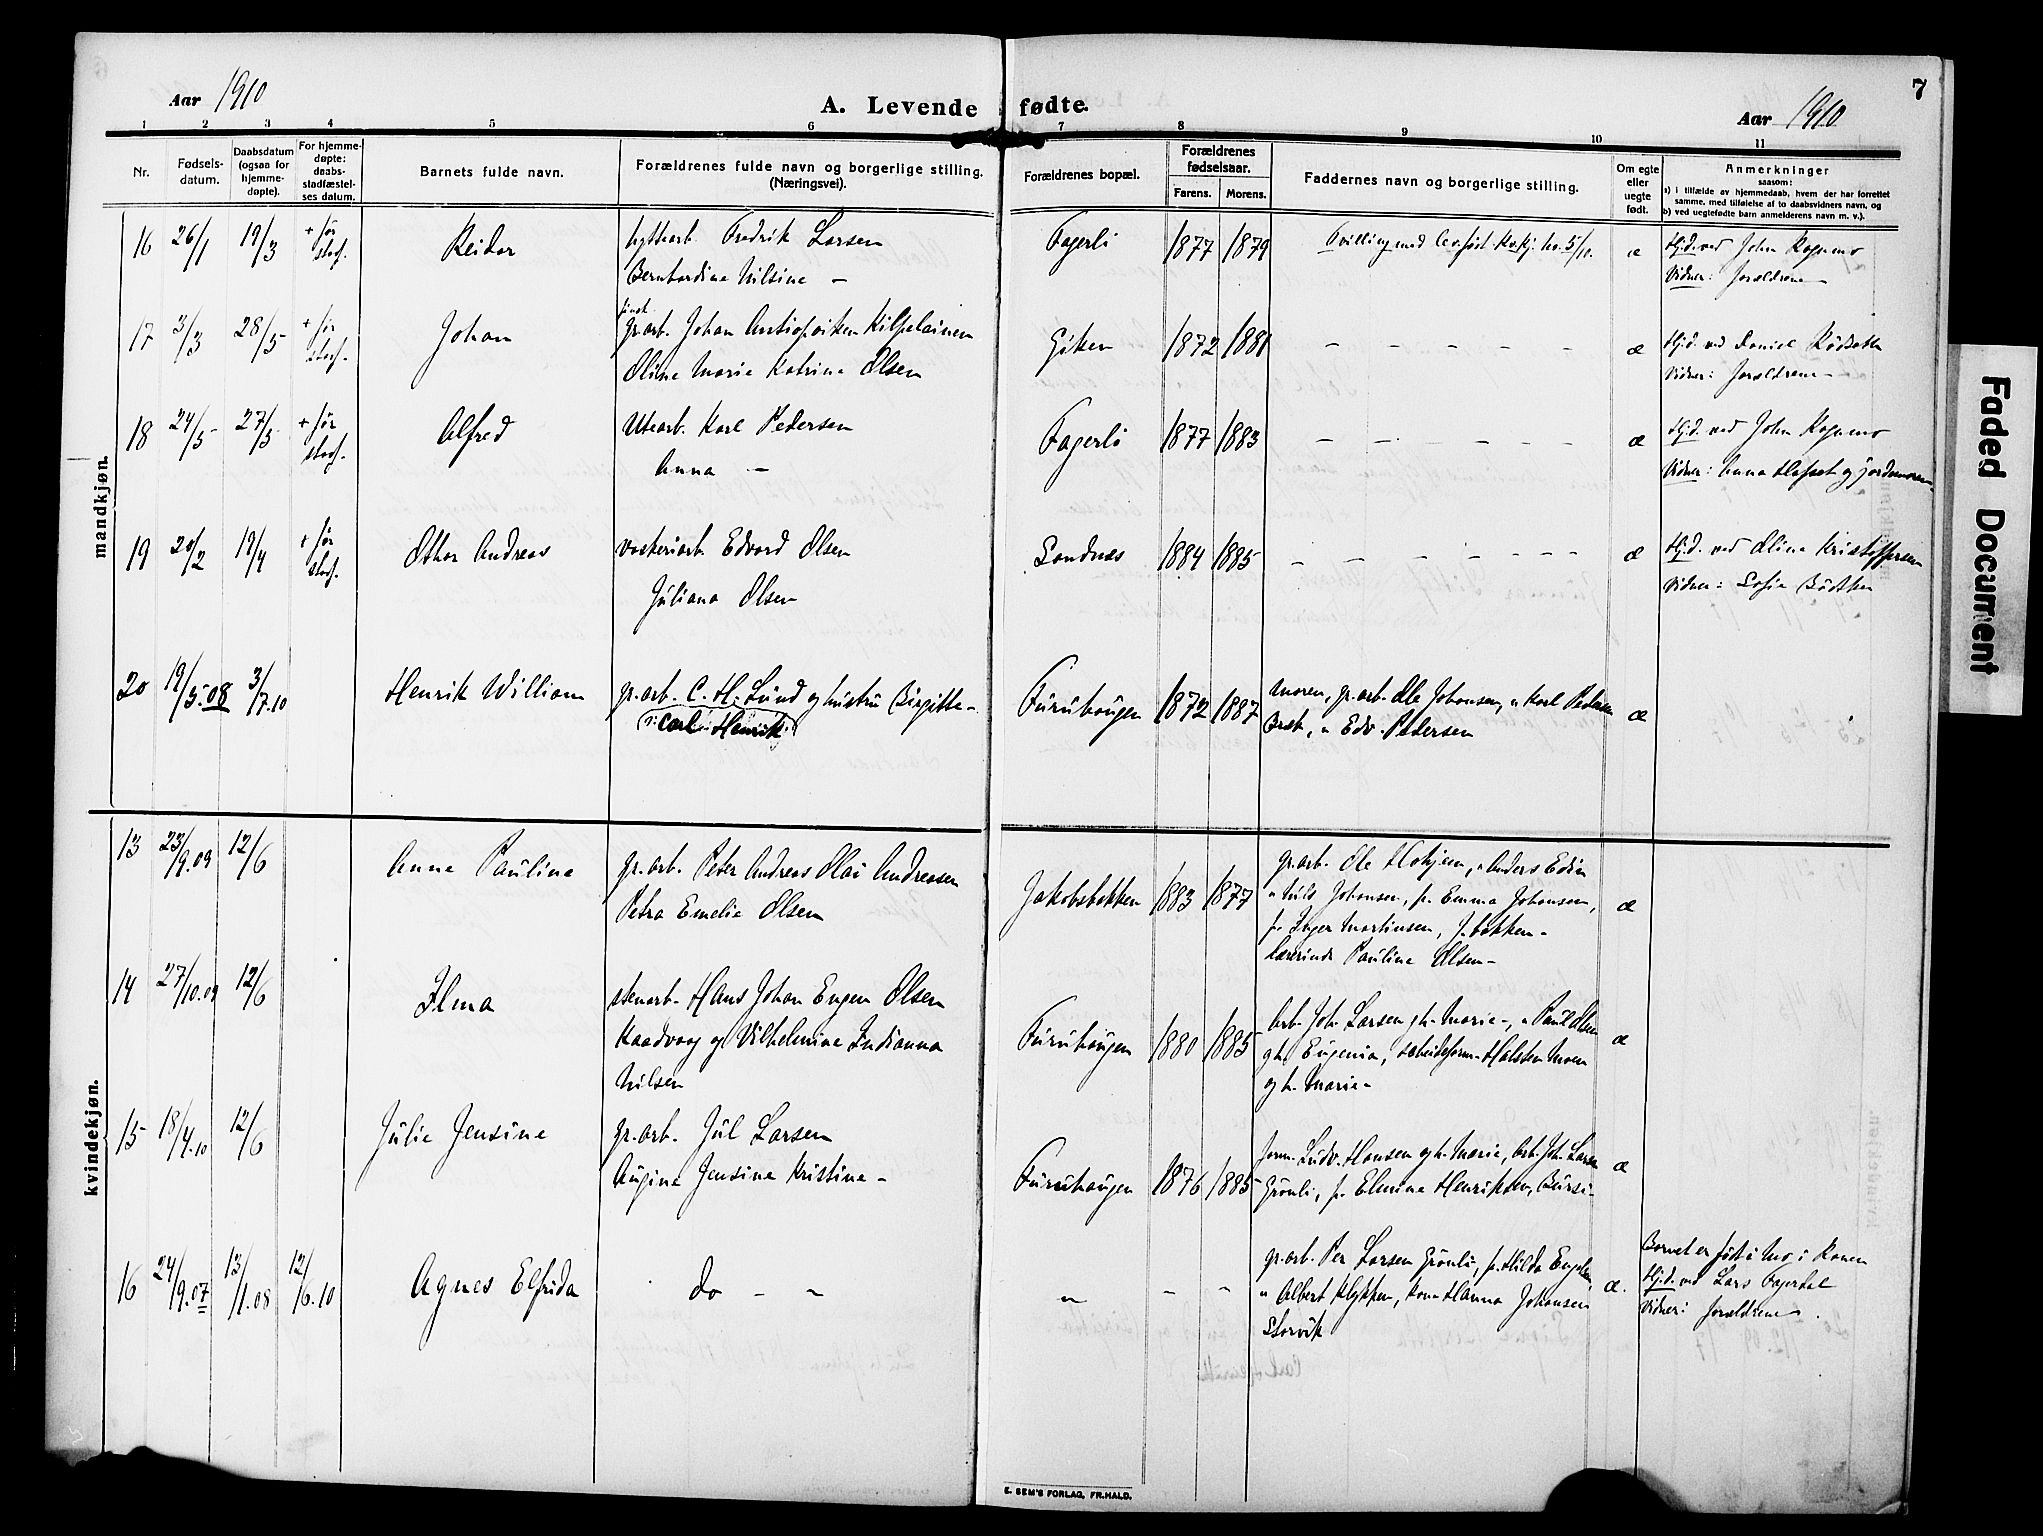 7
Aar 1910
A. Levende fødte.
Aar 1910
1 2 3 4 5 6 7 8 9 10 11
Nr.
Fødsels-
datum.
Daabsdatum
(ogsaa for
hjemme-
døpte).
For hjemme-
døpte:
daabs-
stadfæstel-
ses datum.
Barnets fulde navn.
Forældrenes fulde navn og borgerlige stilling.
(Næringsvei).
Forældrenes bopæl.
Forældrenes
fødselsaar.
Farens. Morens.
Faddernes navn og borgerlige stilling.
Om egte
eller
uegte
født.
Anmerkninger
saasom:
a) i tilfælde av hjemmedaab, hvem der har forrettet
samme, med tilføielse af to daabsvidners navn, og
b) ved uegtefødte barn anmelderens navn m. v.).
mandkjøn.
16 26/1 19/3 + før
stadf.
Reidar
hyttearb. Fredrik Larsen
Bernhardine Nilsine —
Fagerli 1877 1879
Tvilling med lev. født kv.kj. no. 5/10. æ
Hj.d. ved John Rognmo
Vidner: forældrene
17 3/3 28/5 + før
stadf.
Johan
finsk
gr.arb. Johan Kilpelainen
Oline Marie Katrine Olsen
Giken 1872 1881 — — — — — — æ
Hj.d. ved Daniel
Vidner: forældrene
18 24/5 27/5 + før
stadf.
Alfred
Utearb. Karl Pedersen
Anna —
Fagerli 1877 1883 — — — — — — æ
Hj.d. ved John Rognmo
Vidner: Anna og jordmoren
19 20/2 19/4 + før
stadf.
Othar Andreas
vaskeriarb. Edvard Olsen
Juliana Olsen
Sandnes 1884 1885 — — — — — — — æ
Hj.d. ved Oline Kristoffersen
Vidner: Sofie
20 19/5.08 3/7.10
Henrik William
gr.arb. C. H. Lund og hustru Birgitte —
ɔ: Carl Henrik
Furuhaugen 1872 1887
Moren, gr.arb. Ole Johansen, " Karl Pedersen
" Edv. Petersen æ
kvindekjøn.
13 23/9.09 12/6
Anna Pauline
gr.arb. Peter Andreas Olai Andreasen
Petra Emelie Olsen
Jakobsbakken 1883 1877
gr.arb. Ole " Anders Edin
" Nils Johansen, fr. Emma Johansen,
fr. Inger Martinsen,
lærerinde Pauline Olsen —
æ
14 27/10.09 12/6
Ilma
stenarb. Hans Johan Eugen Olsen
Kaadvaag og Vilhelmine Indianna
Nilsen
Furuhaugen 1880 1885
Arb. Joh. Larsen og h. Marie —, " Paul Olsen
og h. Eugenia, arbeidsform. Halsten Moen
og h. Marie —
æ
15 18/4.10 12/6
Julie Jensine
gr.arb. Jul Larsen
Augine Jensine Kristine —
Furuhaugen 1876 1885
form. Ludv. Hansen og h. Marie, Arb. Joh. Larsen
Grønli, fr. Elmine Henriksen, Bursi-
æ
16 24/9.07 13/1.08 12/6.10
Agnes Elfrida
do — "
" — "
gr.arb. Per Larsen Grønli, fr. Hilda Engelsen,
" Albert Klykken, kone Hanna Johansen
Storvik
æ.
Barnet er født i Mo i Ranen
Hj.d. ved Lars Fagerdal
Vidner: forældrene.
E. SEM'S FORLAG, FR.HALD.
Faded Document